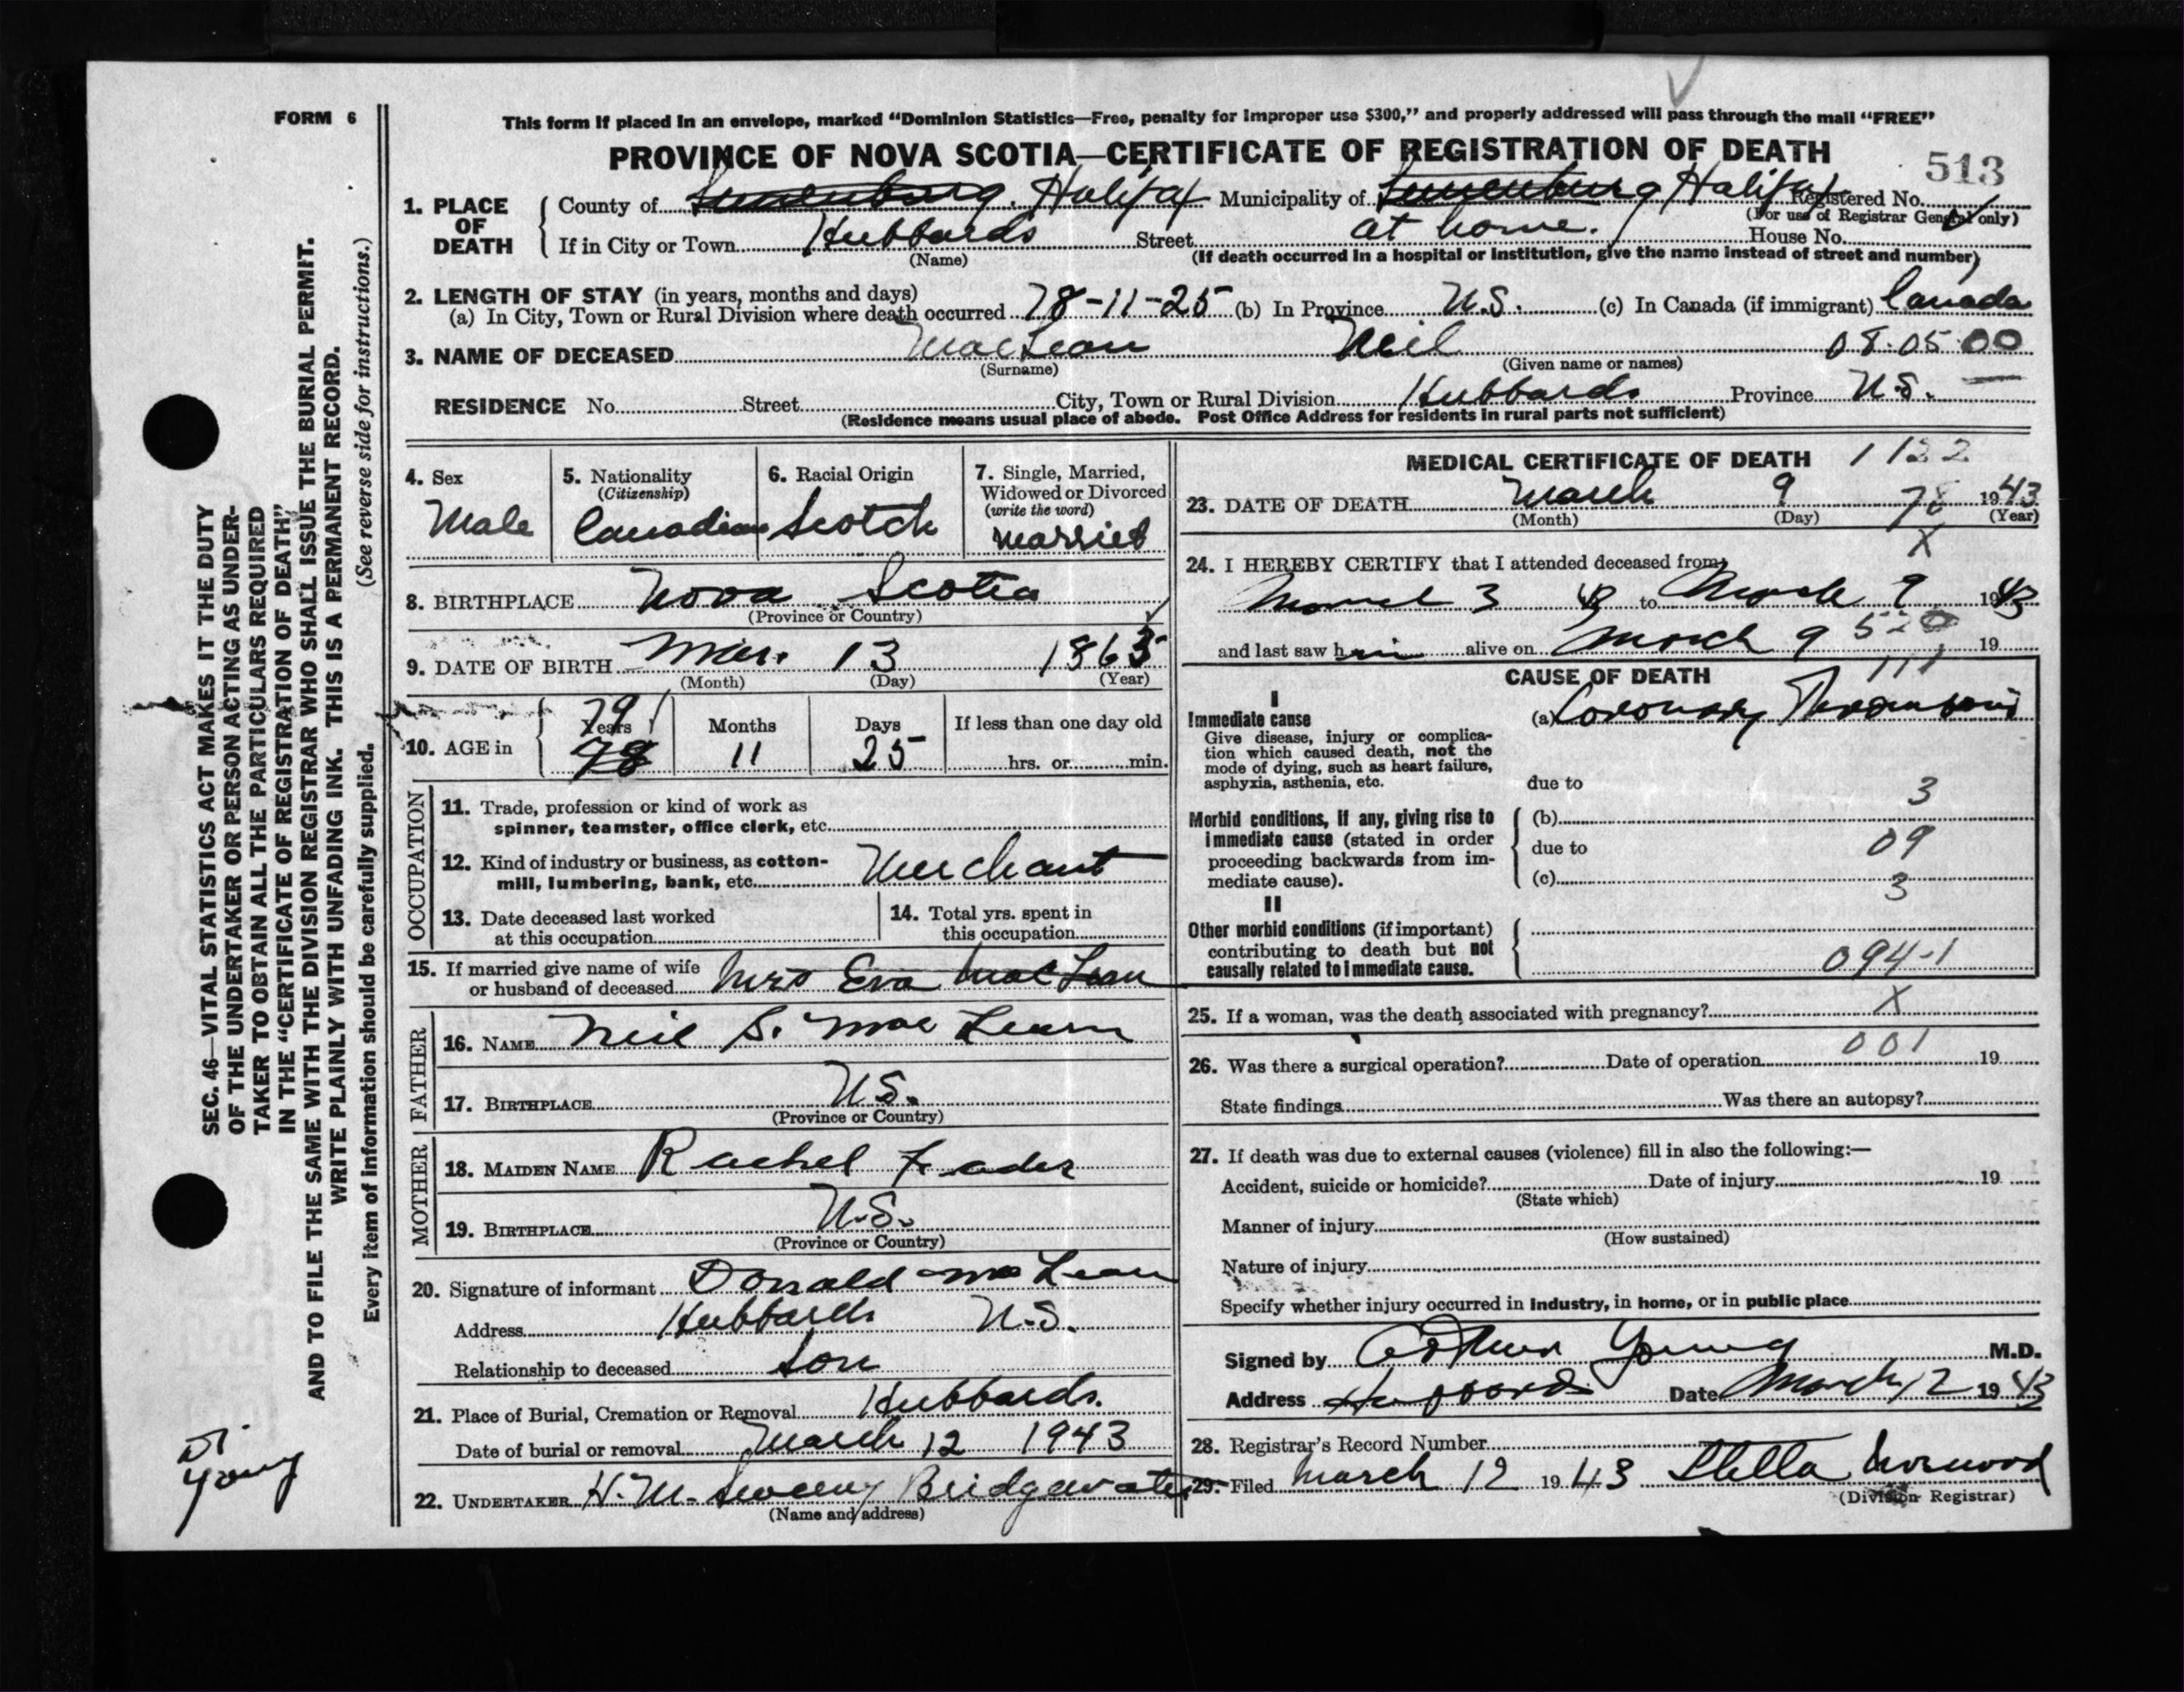 FORM 6
This form if placed in an envelope, marked "Dominion Statistics—Free, penalty for improper use $300," and properly addressed will pass through the mail "FREE"
PROVINCE OF NOVA SCOTIA—CERTIFICATE OF REGISTRATION OF DEATH
513
1. PLACE OF DEATH
County of Lunenburg. Halifax Municipality of Lunenburg Halifax Registered No.
(For use of Registrar General only)
If in City or Town Hubbards Street at home. House No.
(Name) (If death occurred in a hospital or institution, give the name instead of street and number)
2. LENGTH OF STAY (in years, months and days)
(a) In City, Town or Rural Division where death occurred 78-11-25 (b) In Province N.S. (c) In Canada (if immigrant) Canada
3. NAME OF DECEASED MacLean Neil 08.05.00
(Surname) (Given name or names)
RESIDENCE No. Street City, Town or Rural Division Hubbards Province N.S. —
(Residence means usual place of abode. Post Office Address for residents in rural parts not sufficient)
4. Sex
Male
5. Nationality
(Citizenship)
Canadian
6. Racial Origin
Scotch
7. Single, Married,
Widowed or Divorced
(write the word)
married
8. BIRTHPLACE Nova Scotia
(Province or Country)
9. DATE OF BIRTH Mar. 13 1863
(Month) (Day) (Year)
10. AGE in
79
Years Months Days If less than one day old
78 11 25 hrs. or min.
OCCUPATION
11. Trade, profession or kind of work as
spinner, teamster, office clerk, etc.
12. Kind of industry or business, as cotton-
mill, lumbering, bank, etc. Merchant
13. Date deceased last worked
at this occupation
14. Total yrs. spent in
this occupation
15. If married give name of wife
or husband of deceased Mrs Eva MacLean
FATHER
16. NAME Neil S. MacLean
17. BIRTHPLACE N.S.
(Province or Country)
MOTHER
18. MAIDEN NAME Rachel Fader
19. BIRTHPLACE N.S.
(Province or Country)
20. Signature of informant Donald MacLean
Address Hubbards N.S.
Relationship to deceased Son
21. Place of Burial, Cremation or Removal Hubbards.
Date of burial or removal March 12 1943
22. UNDERTAKER H.M. Sweeny Bridgewater
(Name and address)
MEDICAL CERTIFICATE OF DEATH 1122
23. DATE OF DEATH March 9 78 1943
(Month) (Day) (Year)
X
24. I HEREBY CERTIFY that I attended deceased from
March 3 43 to March 9 1943
and last saw him alive on March 9 19
CAUSE OF DEATH
111
I
Immediate cause
Give disease, injury or complica-
tion which caused death, not the
mode of dying, such as heart failure,
asphyxia, asthenia, etc.
(a) Coronary Thrombosis
due to
3
Morbid conditions, if any, giving rise to
immediate cause (stated in order
proceeding backwards from im-
mediate cause).
(b)
due to 09
(c)
3
II
Other morbid conditions (if important)
contributing to death but not
causally related to immediate cause.
094-1
25. If a woman, was the death associated with pregnancy? X
26. Was there a surgical operation? Date of operation 001 19
State findings Was there an autopsy?
27. If death was due to external causes (violence) fill in also the following:—
Accident, suicide or homicide? Date of injury 19
(State which)
Manner of injury
(How sustained)
Nature of injury
Specify whether injury occurred in industry, in home, or in public place
Signed by Arthur Young M.D.
Address Hubbards Date March 12 1943
28. Registrar's Record Number
29. Filed March 12 1943 Stella
(Division Registrar)
SEC. 46—VITAL STATISTICS ACT MAKES IT THE DUTY
OF THE UNDERTAKER OR PERSON ACTING AS UNDER-
TAKER TO OBTAIN ALL THE PARTICULARS REQUIRED
IN THE "CERTIFICATE OF REGISTRATION OF DEATH"
AND TO FILE THE SAME WITH THE DIVISION REGISTRAR WHO SHALL ISSUE THE BURIAL PERMIT.
WRITE PLAINLY WITH UNFADING INK. THIS IS A PERMANENT RECORD.
Every item of information should be carefully supplied. (See reverse side for instructions.)
Dr
Young